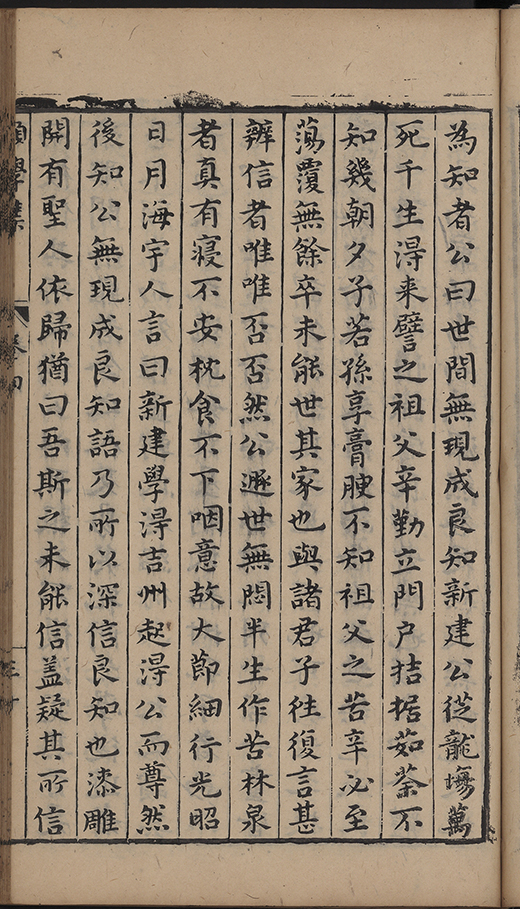 為知者公曰世間無現成良知新建公從龍塲萬
死千生淂来譬之祖父辛勤立門户拮据茹荼不
知幾朝夕子若孫享膏腴不知祖父之苦辛必至
蕩覆無餘卒未能世其家也與諸君子徃復言甚
辨信者唯唯否否然公遯世無悶半生作苦林泉
者真有寢不安枕食不下咽意故大節細行光昭
日月海宇人言曰新建學淂吉州趂淂公而尊然
後知公無現成良知語乃所以深信良知也漆雕
開有聖人依歸猶曰吾斯之未能信盖疑其所信
願學集
卷四
三十